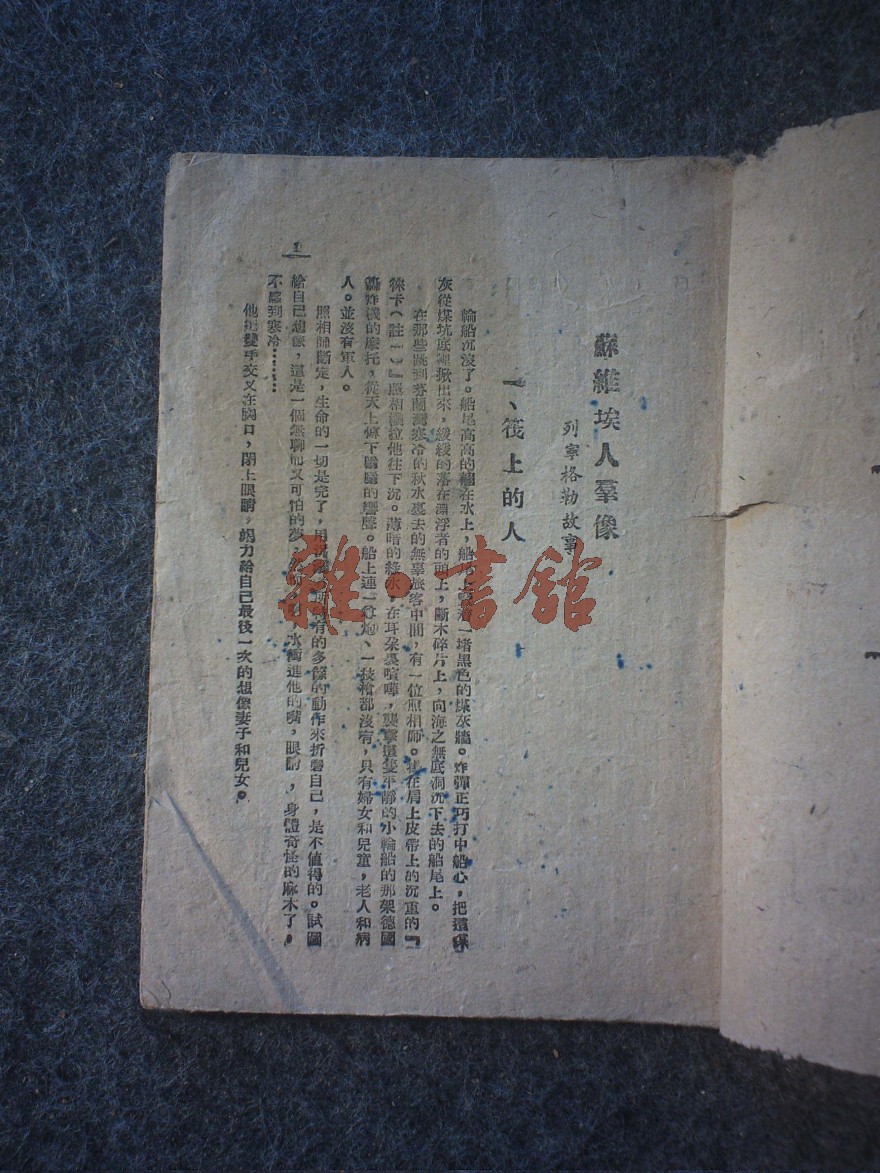 蘇維埃人羣像
列寧格勒故事
一、筏上的人
輪船沉沒了。船尾高高的翹在水上,船尾上 一堵黑色的煤灰牆。炸彈正巧打中船心,把這煤
灰從煤坑底裡掀出來,緩緩的落在漂浮者的頭上,斷木碎片上,向海之無底洞沉下去的船尾上。
在那些跳到芬蘭灣寒冷的秋水裏去的無辜旅客中間,有一位照相師。掛在肩上皮帶上的沉重的『
徠卡(註一)』照相機拉他往下沉。薄暗的綠水,在耳朵裏喧嘩,襲擊這隻平靜的小輪船的那架德國
轟炸機的摩托,從天上傳下 的響聲。船上連一 炮、一枝槍都沒有,只有婦女和兒童,老人和病
人。並沒有軍人。
照相師斷定,生命的一切是完了,用 有的多餘的動作來折磨自己,是不值得的。試圖
給自己想像,這是一個無聊而又可怕的夢 水衝進他的嘴,眼睛,身體奇怪的麻木了,
不感到寒冷………
他把雙手交叉在胸口,閉上眼睛,竭力給自己最後一次的想像妻子和兒女。
1
雜·書館